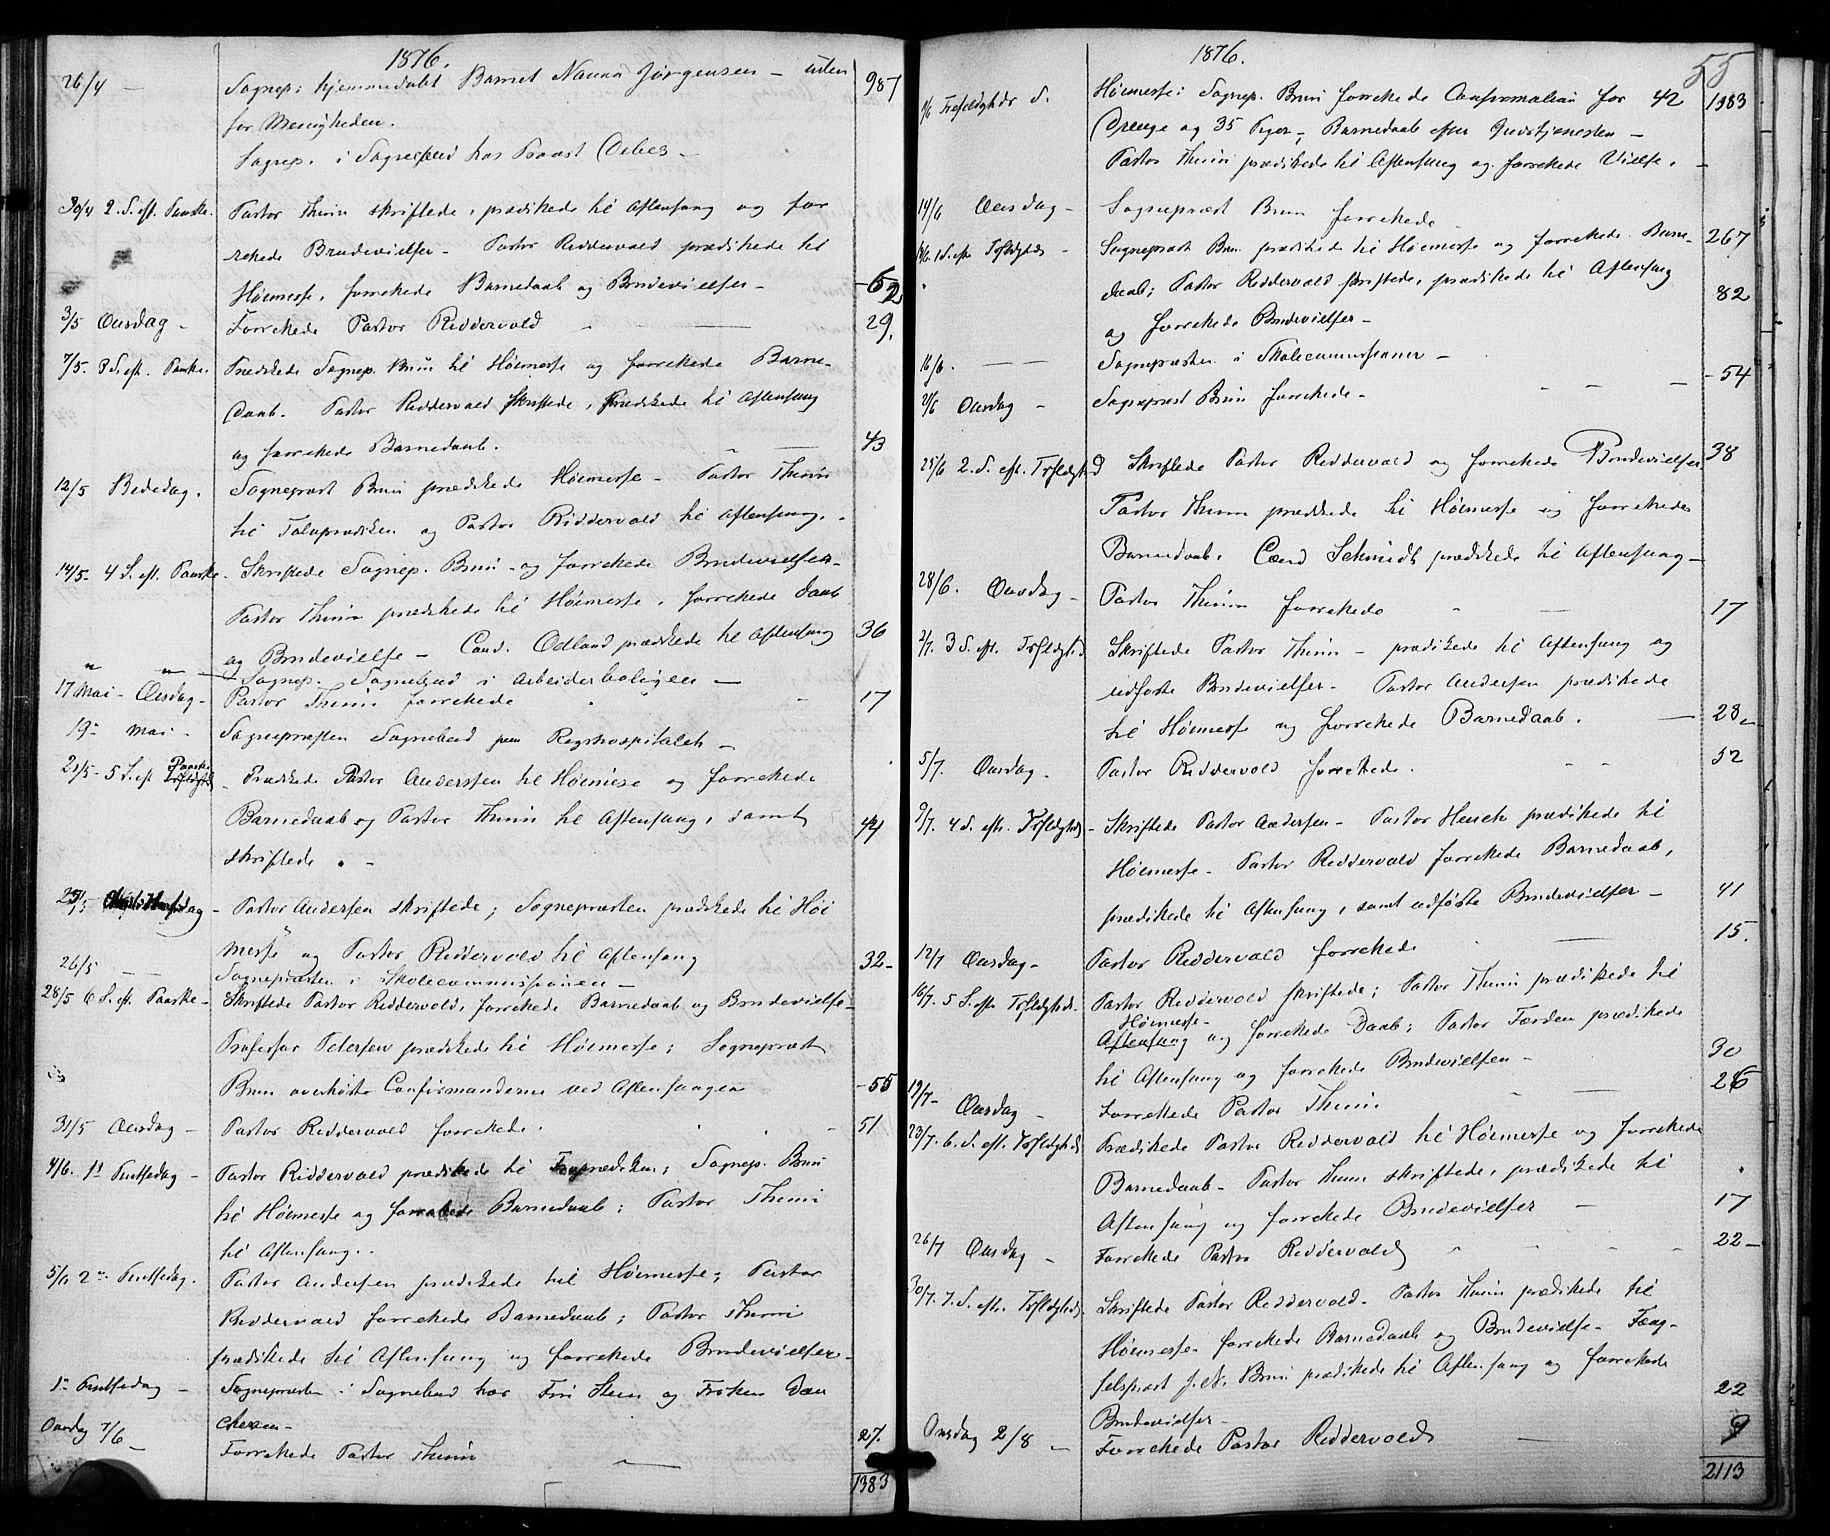 1876.
26/4 - Sognep: hjemmedøbt Barnet Nanna Jørgensen - uden 987
for Menigheden.
Sognep. i Sognebud hos Provst Debes -
30/4 2. S. eft. Paaske. Pastor Thinn skriftede, prædikede til Aftensang og for
rettede Brudevielser - Pastor Riddervold prædikede til
Høimesse, forrettede Barnedaab og Brudevielser - 62
3/5 Onsdag - Forrettede Pastor Riddervold - 29.
7/5 - 3 S. eft. Paaske. Prædikede Sognep. Brun til Høimesse og forrettede Barne-
daab. Pastor Riddervold skriftede, prædikede til Aftensang
og forrettede Barnedaab. - 43
12/5 Bededag. Sogneprest Brun prædikede Høimesse - Pastor Thinn
til Toluprædiken og Pastor Riddervold til Aftensang.
14/5 - 4 S. eft. Paaske - Skriftede Sognep. Brun - og forrettede Brudevielser -
Pastor Thinn prædikede til Høimesse, forrettede Daab
og Brudevielse - Cand. Odland prædikede til Aftensang 36
" " - Sognep. Sognebud i Arbeiderboligen -
17 Mai - Onsdag - Pastor Thinn forrettede - 17
19 - Mai - Sognepresten Sognebud paa Rigshospitalet -
21/5 - 5 S. eft Paaske - Prædikede Pastor Anderssen til Høimesse og forrettede
Barnedaab og Pastor Thinn til Aftensang, samt 44
skriftede. -
25/5 Christi Himfdag - Pastor Andersen skriftede; Sognepresten prædikede til Høi
messe og Pastor Riddervold til Aftensang 32 -
26/5 - - Sognepresten i Skolecommissionen -
28/5 6 S. eft. Paaske - Skriftede Pastor Riddervold, forrettede Barnedaab og Brudevielse -
Professor Petersen prædikede til Høimesse; Sogneprest
Brun overhørte Confirmanderne ved Aftensangen - 55
31/5 Onsdag - Pastor Riddervold forrettede. - 51
4/6. 1st Pintsedag - Pastor Riddervold prædikede til Froprædiken; Sognep. Brun
til Høimesse og forrettede Barnedaab; Pastor Thinn
til Aftensang..
5/6 2 - Pintsedag. Pastor Andersen prædikede til Høimesse; Pastor
Riddervold forrettede Barnedaab; Pastor Thinn
prædikede til Aftensang og forrettede Brudevielser -
1 - Pintsedag - Sognepresten i Sognebud hos Fru Steen og Frøken Dan
chersen -
Onsdag 7/6 - Forrettede Pastor Thinn - 27.
1383
1876. 55
Trefoldigheds S. Høimesse: Sognep. Brun forrettede Confirmation for 42 1383
Drenge og 35 Piger - Barnedaab efter Gudstjenesten -
Pastor Thinn prædikede til Aftensang og forrettede Vielse. -
14/6 Onsdag - Sogneprest Brun forrettede
18/6 1 S. eft Trefoldighds - Sogneprest Brun prædikede til Høimesse og forrettede Barne- 267
daab; Pastor Riddervold skriftede, prædikede til Aftensang
og forrettede Brudevielser - 82
16/6. - Sognepresten i Skolecommissionen -
21/6 Onsdag - Sogneprest Brun forrettede - - - - - 54
25/6 2. S. eft. Trefoldighed Skriftede Pastor Riddervold og forrettede Brudevielser 38
Pastor Thinn prædikede til Høimesse og forrettede
Barnedaab. Cand Schmidt prædikede til Aftensang -
28/6. Onsdag - Pastor Thinn forrettede " - 17
2/7. 3 S. eft. Trefoldighed. Skriftede Pastor Thinn - prædikede til Aftensang og
udførte Brudevielser - Pastor Andersen prædikede
til Høimesse og forrettede Barnedaab. - 28 -
5/7. Onsdag. Pastor Riddervold forrettede. - - 52
9/7. 4 S. eftr. Trefoldighds - Skriftede Pastor Andersen - Pastor Heuch prædikede til
Høimesse - Pastor Riddervold forrettede Barnedaab,
prædikede til Aftensang, samt udførte Brudevielser - 41
12/7 Onsdag - Pastor Riddervold forrettede - 15.
16/7. 5 S. eftr Trefoldighds. Pastor Riddervold skriftede; Pastor Thinn prædikede til
Høimesse -
Aftensang og forrettede Daab; Pastor Færden prædikede
til Aftensang og forrettede Brudevielsen - 30
19/7 - Onsdag - Forrettede Pastor Thinn - 26
23/7. 6. S. eft. Trefoldighds Prædikede Pastor Riddervold til Høimesse og forrettede
Barnedaab - Pastor Thinn skriftede, prædikede til
Aftensang og forrettede Brudevielser - 17
26/7 Onsdag - Forrettede Pastor Riddervold " " - - 22 -
30/7. 7. S. eftr. Trefoldighds. Skriftede Pastor Riddervold - Pastor Thinn prædikede til
Høimesse - forrettede Barnedaab og Brudevielse - Fæng-
selsprest J. N. Brun prædikede til Aftensang og forrettede
Brudevielser - 22
Onsdag 2/8 - Forrettede Pastor Riddervold - 9
2113